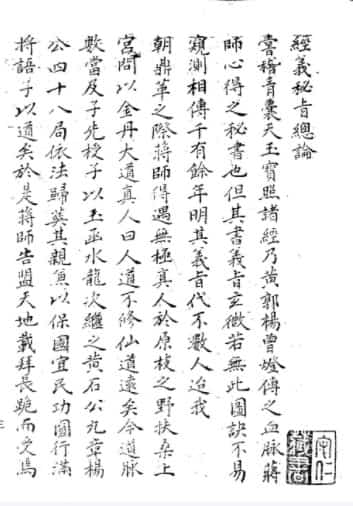 經義秘旨總論
嘗稽青囊天玉寶照諸經乃黃郭楊曾嬗傳之血脉蔣
師心得之秘書也但其書義旨玄微若無此圖訣不易
窺測相傳千有餘年明其義旨代不數人迨我
朝鼎革之際蔣師得遇無極真人於原梭之野扶桑上
宮問以金丹大道真人曰人道不修仙道遠矣今道脉
數當及子先授子以玉函水龍次繼之黃石公九章楊
公四十八局依法歸葬其親魚以保國宜民功圓行滿
将語子以道矣於是蔣師告盟天地載拜長跪而受焉
守仁
藏書